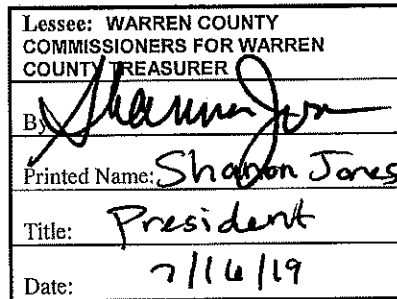 Lessee: WARREN COUNTY
COMMISSIONERS FOR WARREN
COUNTY TREASURER
By
Printed Name: Shanon Jones
Title: President
Date: 7/16/19